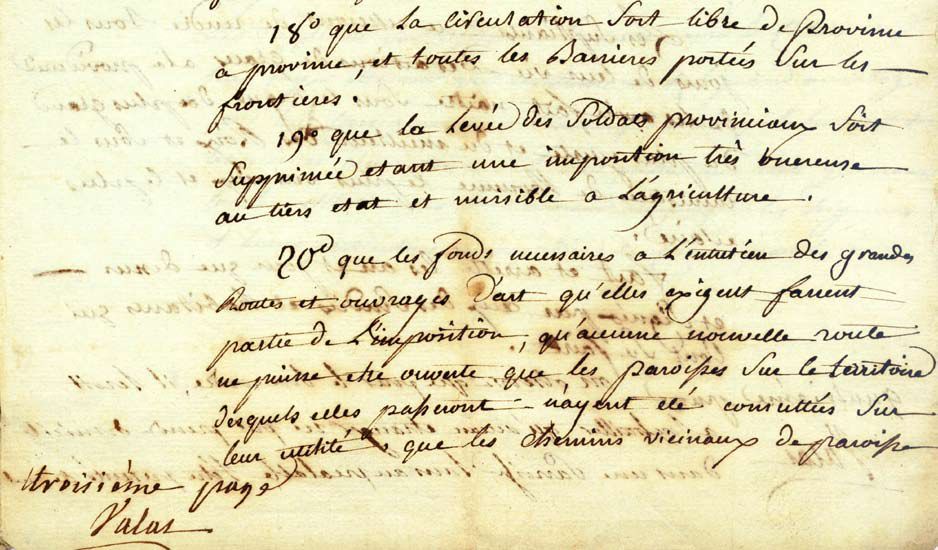 18º que la circulation soit libre de province
a province, et toutes les Barrieres portées sur les
frontieres.
19º que la Levée des Soldats provinciaux soit
Supprimée etant une imposition très onereuse
au tiers etat et nuisible a L'agriculture.
20º que les fonds necessaires a L'entretien des grandes
Routes et ouvrages D'art qu'elles exigent fassent
partie de L'imposition, qu'aucune nouvelle route
ne puisse etre ouverte que les paroisses Sur le territoire
desquels elles passeront n'ayent été consultées Sur
leur utilité que les chemins vicinaux de paroisse
troisiéme page
Valat